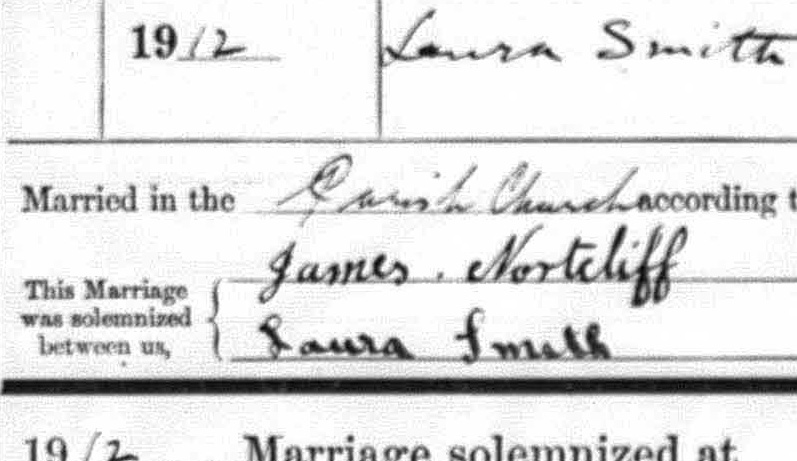 1912 Laura Smith
Married in the Parish Church according t
James Nortcliff
This Marriage
was solemnized
between us,
Laura Smith
1912 Marriage solemnized at